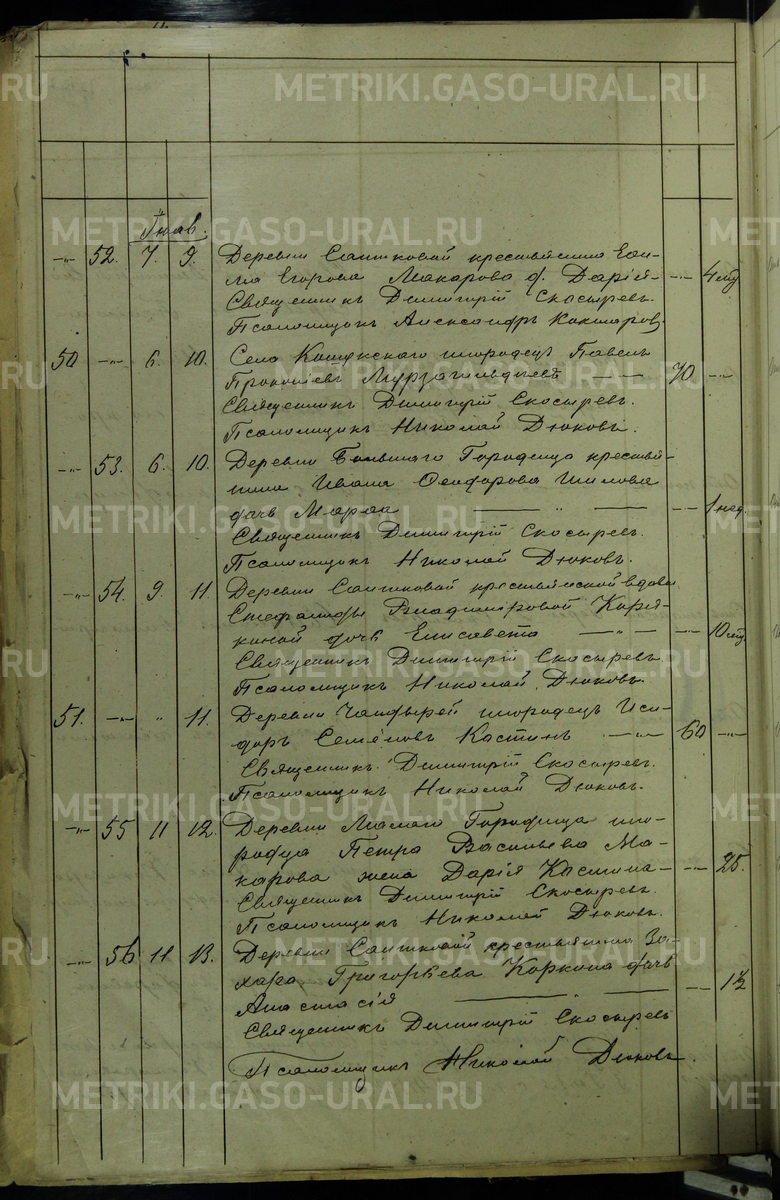 METRIKI.GASO-URAL.RU
Деревни Саитковой крестьянина
Егорова Макарова д. Дарія
-"- 52. 7. 9. -"- 4 м
Священникъ Димитрій Скосыревъ.
Псаломщикъ Александръ
50 -"- 6. 10. Села инородецъ Павелъ
Прокопіевъ 70 -"-
Священникъ Димитрій Скосыревъ.
Псаломщикъ Николай Дюковъ.
-"- 53. 6. 10. Деревни Большого Городища крестья-
нина Ивана Ѳеодорова Шилова
дочь Марѳа -"- 1 нед.
Священникъ Димитрій Скосыревъ.
Псаломщикъ Николай Дюковъ.
-"- 54. 9. 11. Деревни Саитковой крестьянской вдовы
Стефаниды Владиміровой Коря-
киной дочь Елисавета -"- -"- 10
Священникъ Димитрій Скосыревъ
Псаломщикъ Николай Дюковъ.
51. -"- " 11. Деревни инородецъ Иси-
доръ Семёновъ Костинъ -"- 60 -"-
Священникъ Димитрій Скосыревъ.
Псаломщикъ Николай Дюковъ.
-"- 55 11 12. Деревни Малаго Городища ино-
родца Петра Васильева Ма-
карова жена Дарія Касьина -"- 25.
Священникъ Димитрій Скосыревъ.
Псаломщикъ Николай Дюковъ.
-"- 56 11 13. Деревни Саитковой крестьянина За-
хара Григорьева Коркина дочь
Анастасія " -"- 1½
Священникъ Димитрій Скосыревъ
Псаломщикъ Николай Дюковъ
METRIKI.GASO-URAL.RU